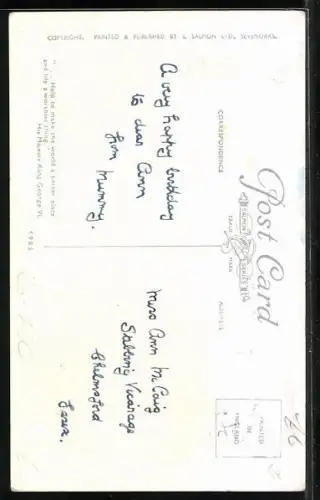 COPYRIGHT. PRINTED & PUBLISHED BY J. SALMON LTD., SEVENOAKS.
Post Card
SALMON SERIES
TRADE MARK
CORRESPONDENCE
ADDRESS
PRINTED
IN
ENGLAND
A very happy birthday
to dear Ann
from Mummy.
"... Help to make the world a better place
and life a worthier thing."
His Majesty King George VI.
Miss Ann McCaig
Stebbing Vicarage
Chelmsford
Essex.